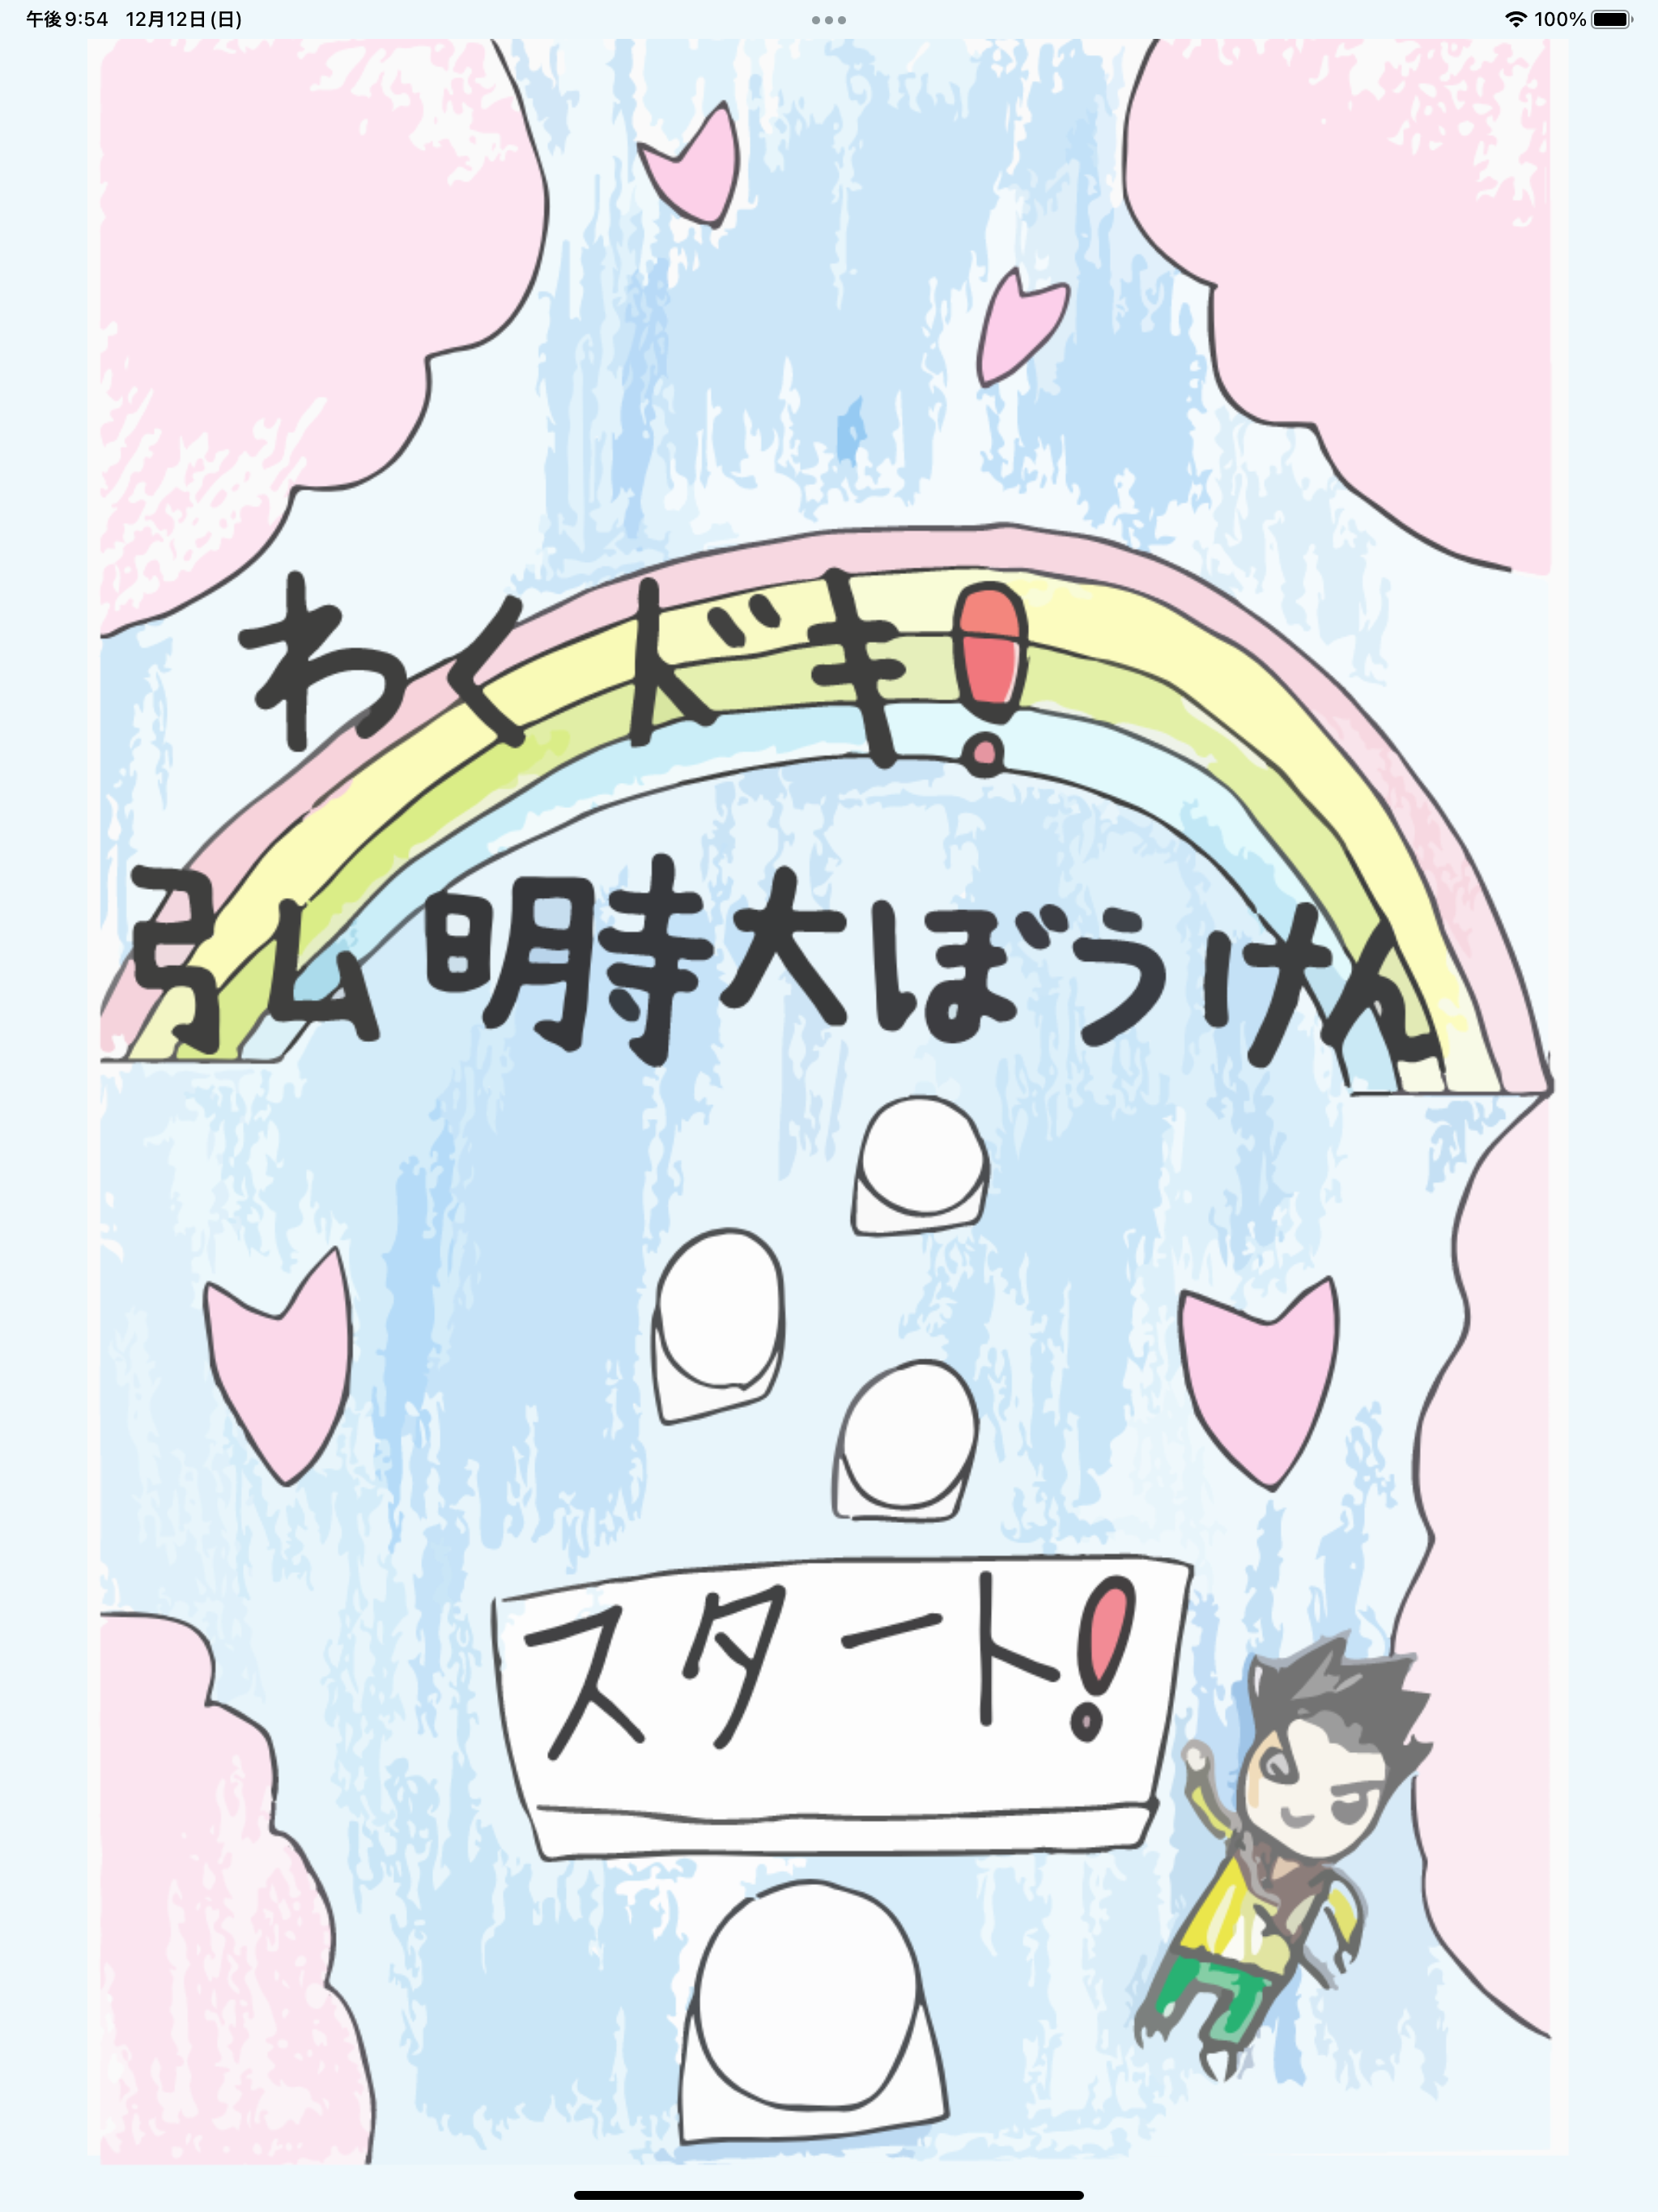 午後9:54 12月12日(日) 100%
わくドキ!
弘明寺大ぼうけん
スタート!